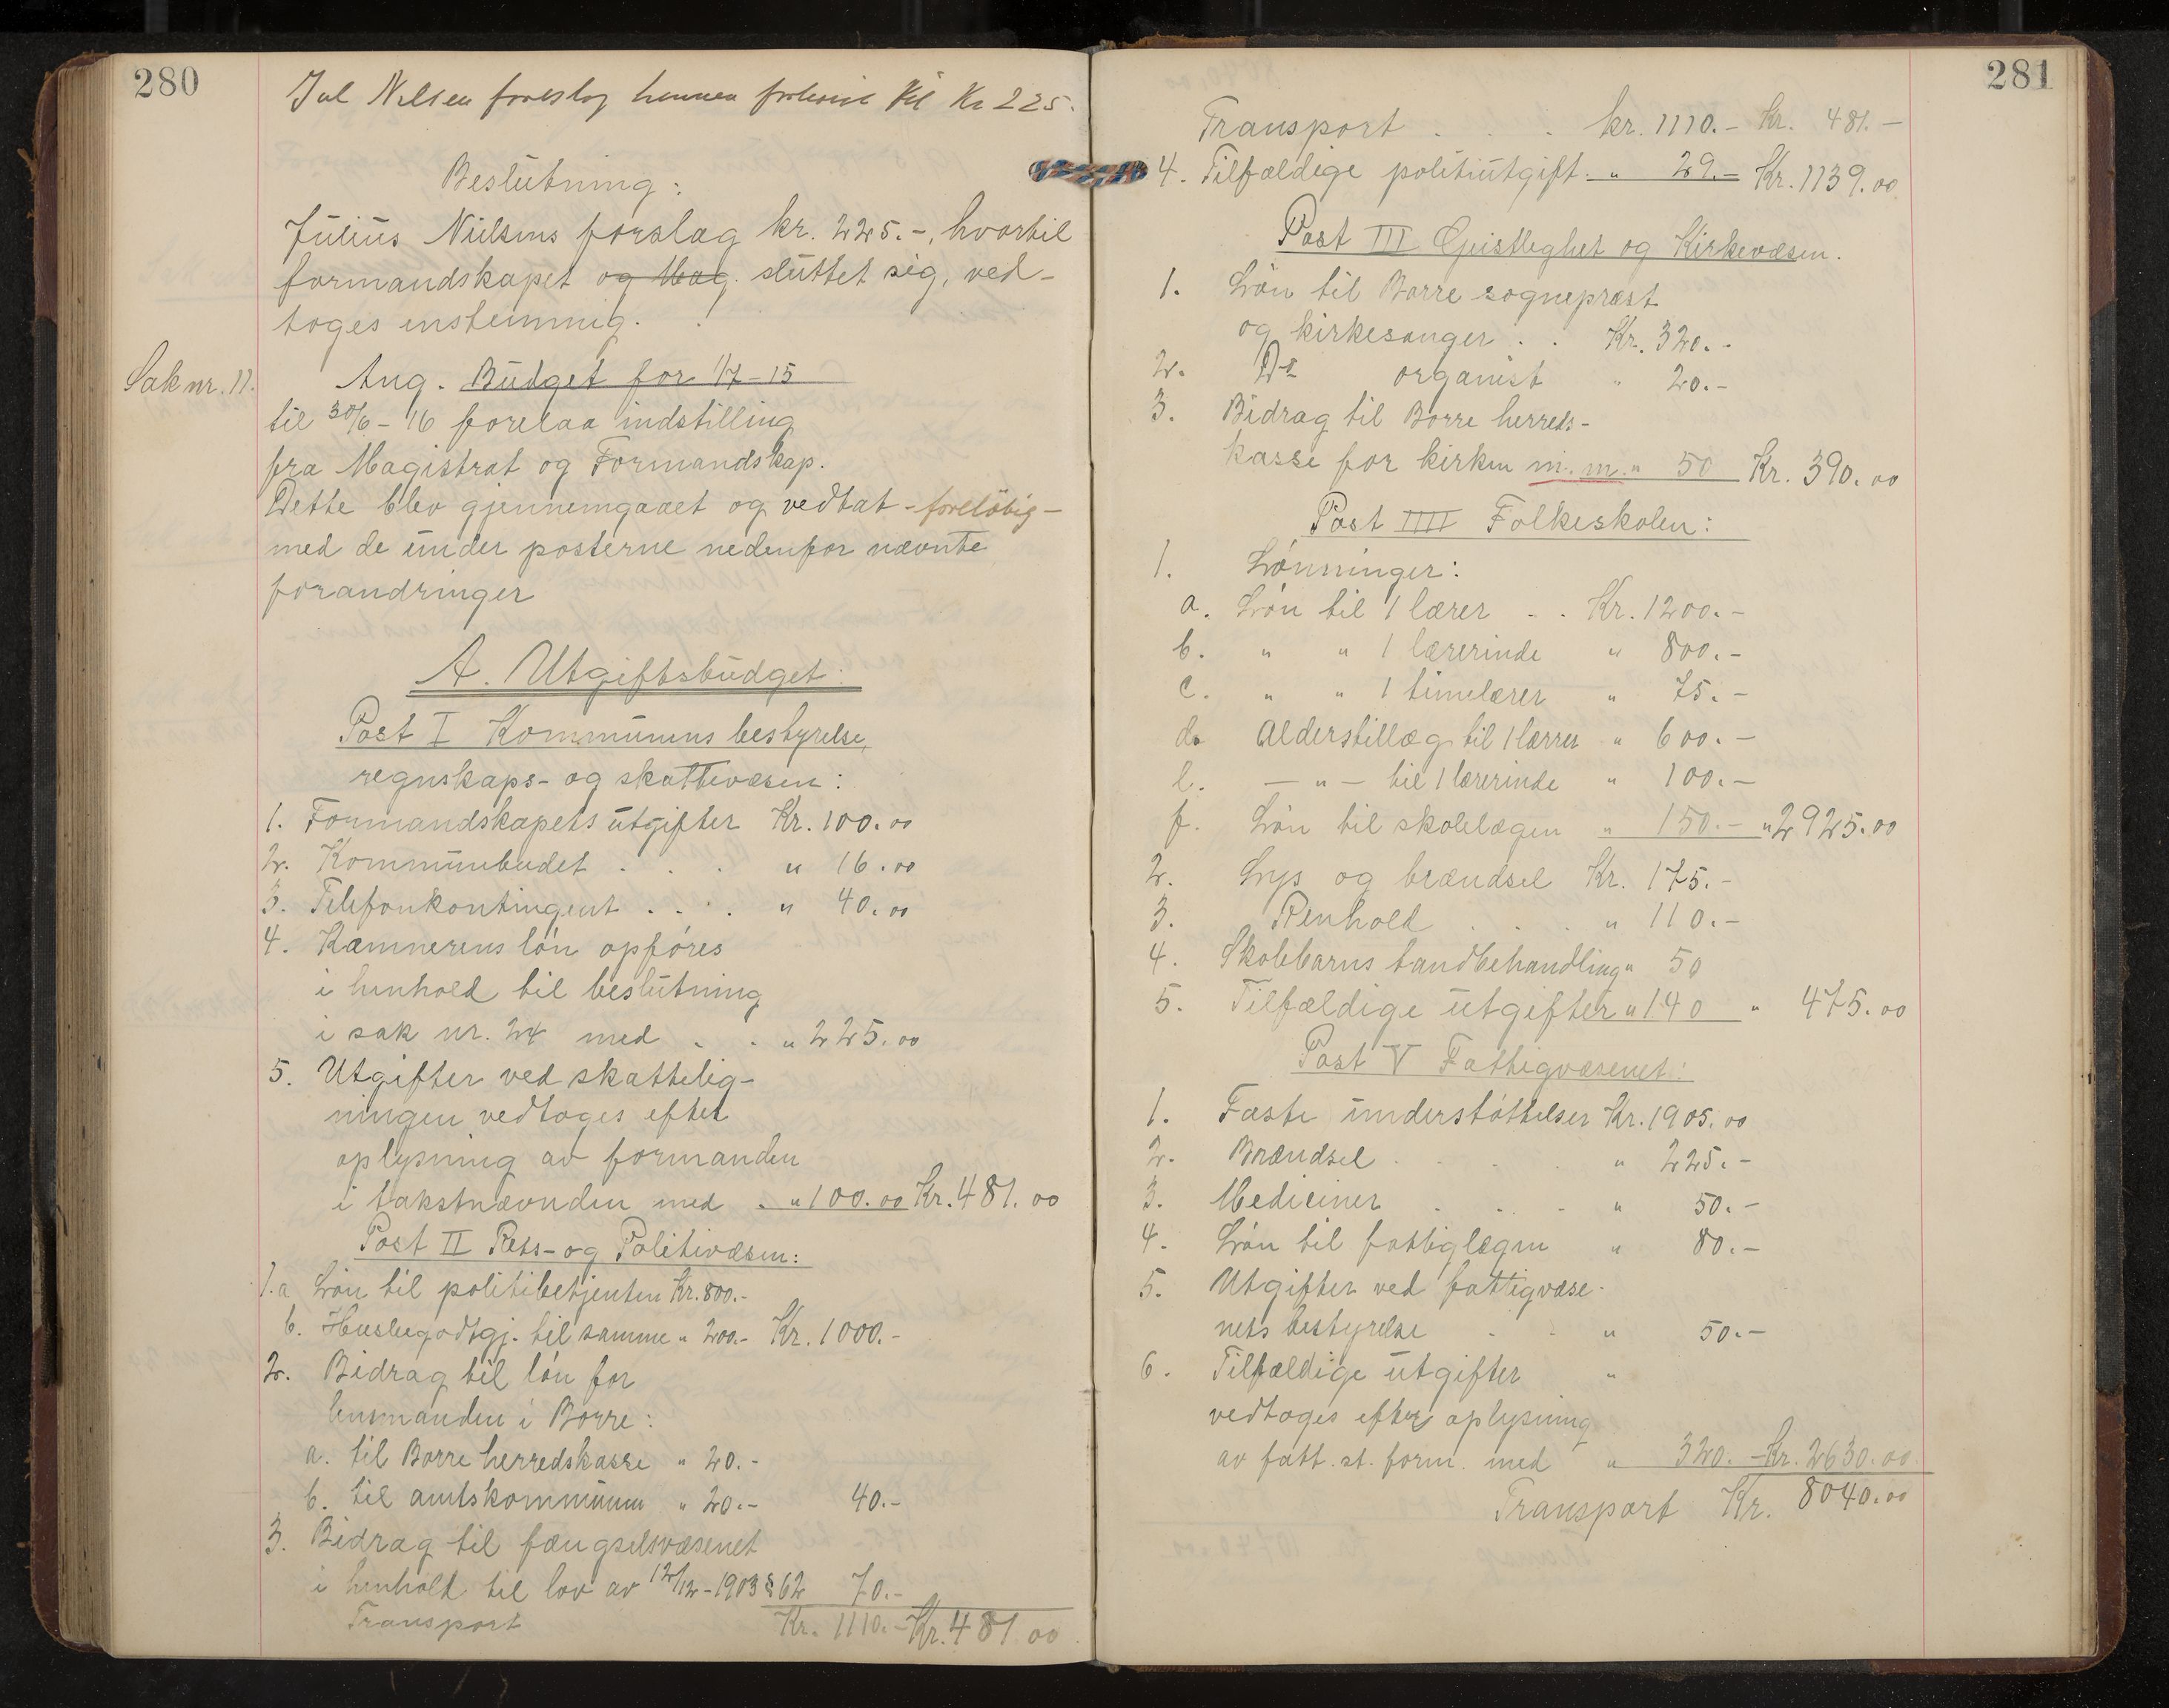 280
Jul Nilsen foreslog lønnen forhøiet til Kr 225.
Beslutning:
Julius Nielsens forslag kr. 225.-, hvortil
formandskapet og Mag. sluttet sig, ved-
toges enstemmig.
Sak nr. 11.
Ang. Budget for 1/7-15
til 30/6-16 forelaa indstilling
fra Magistrat og Formandskap.
Dette blev gjennemgaaet og vedtat -foreløbig-
med de under posterne nedenfor nævnte
forandringer
A. Utgiftsbudget:
Post I Kommunens bestyrelse,
regnskaps- og skattevæsen:
1. Formandskapets utgifter Kr. 100.00
2. Kommunebudet . . . " 16.00
3. Telefonkontingent . . . " 40.00
4. Kæmnerens løn opføres
i henhold til beslutning
i sak nr. 24 med . . " 225.00
5. Utgifter ved skattelig-
ningen vedtoges efter
oplysning av formanden
i takstnævnden med . " 100.00 Kr. 481.00
Post II Rets- og Politivæsen:
1.a Løn til politibetjenten Kr. 800.-
b. Husleiegodtgj. til samme " 200.- Kr. 1000.-
2. Bidrag til løn for
lensmanden i Borre:
a. til Borre herredskasse " 20.-
b. til amtskommunen " 20.- 40.-
3. Bidrag til fængselsvæsenet
i henhold til lov av 12/12-1903 § 62 70.-
Transport Kr. 1110.- Kr. 481.00
281
Transport . . . kr. 1110.- Kr. 481.-
4. Tilfældige politiutgift. " 29.- Kr. 1139.00
Post III Geistlighet og Kirkevæsen.
1. Løn til Borre sogneprest
og kirkesanger . . Kr. 320.-
2. Do organist " 20.-
3. Bidrag til Borre herreds-
kasse for kirken m.m. " 50 Kr. 390.00
Post IIII Folkeskolen:
1. Lønninger:
a. Løn til 1 lærer . . Kr. 1200.-
b. " " 1 lærerinde " 800.-
c. " " 1 timelærer " 75.-
d. Alderstillæg til 1 lærer " 600.-
e. - " - til 1 lærerinde " 100.-
f. Løn til skolelægen " 150.- " 2925.00
2. Lys og brændsel Kr. 175.-
3. Renhold . . . " 110.-
4. Skolebarns tandbehandling " 50
5. Tilfældige utgifter " 140 " 475.00
Post V Fattigvæsenet:
1. Faste understøttelser Kr. 1905.00
2. Brændsel . . . " 225.-
3. Mediciner . . . " 50.-
4. Løn til fattiglægen " 80.-
5. Utgifter ved fattigvæse-
nets bestyrelse . . " 50.-
6. Tilfældige utgifter "
vedtoges efter oplysning
av fatt. st. form. med " 320.- Kr. 2630.00
Transport Kr. 8040.00